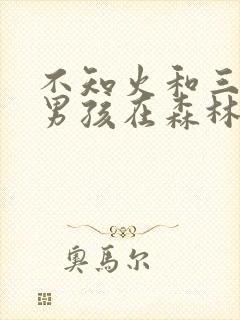 不知火和三
男孩在森林
奥馬尔